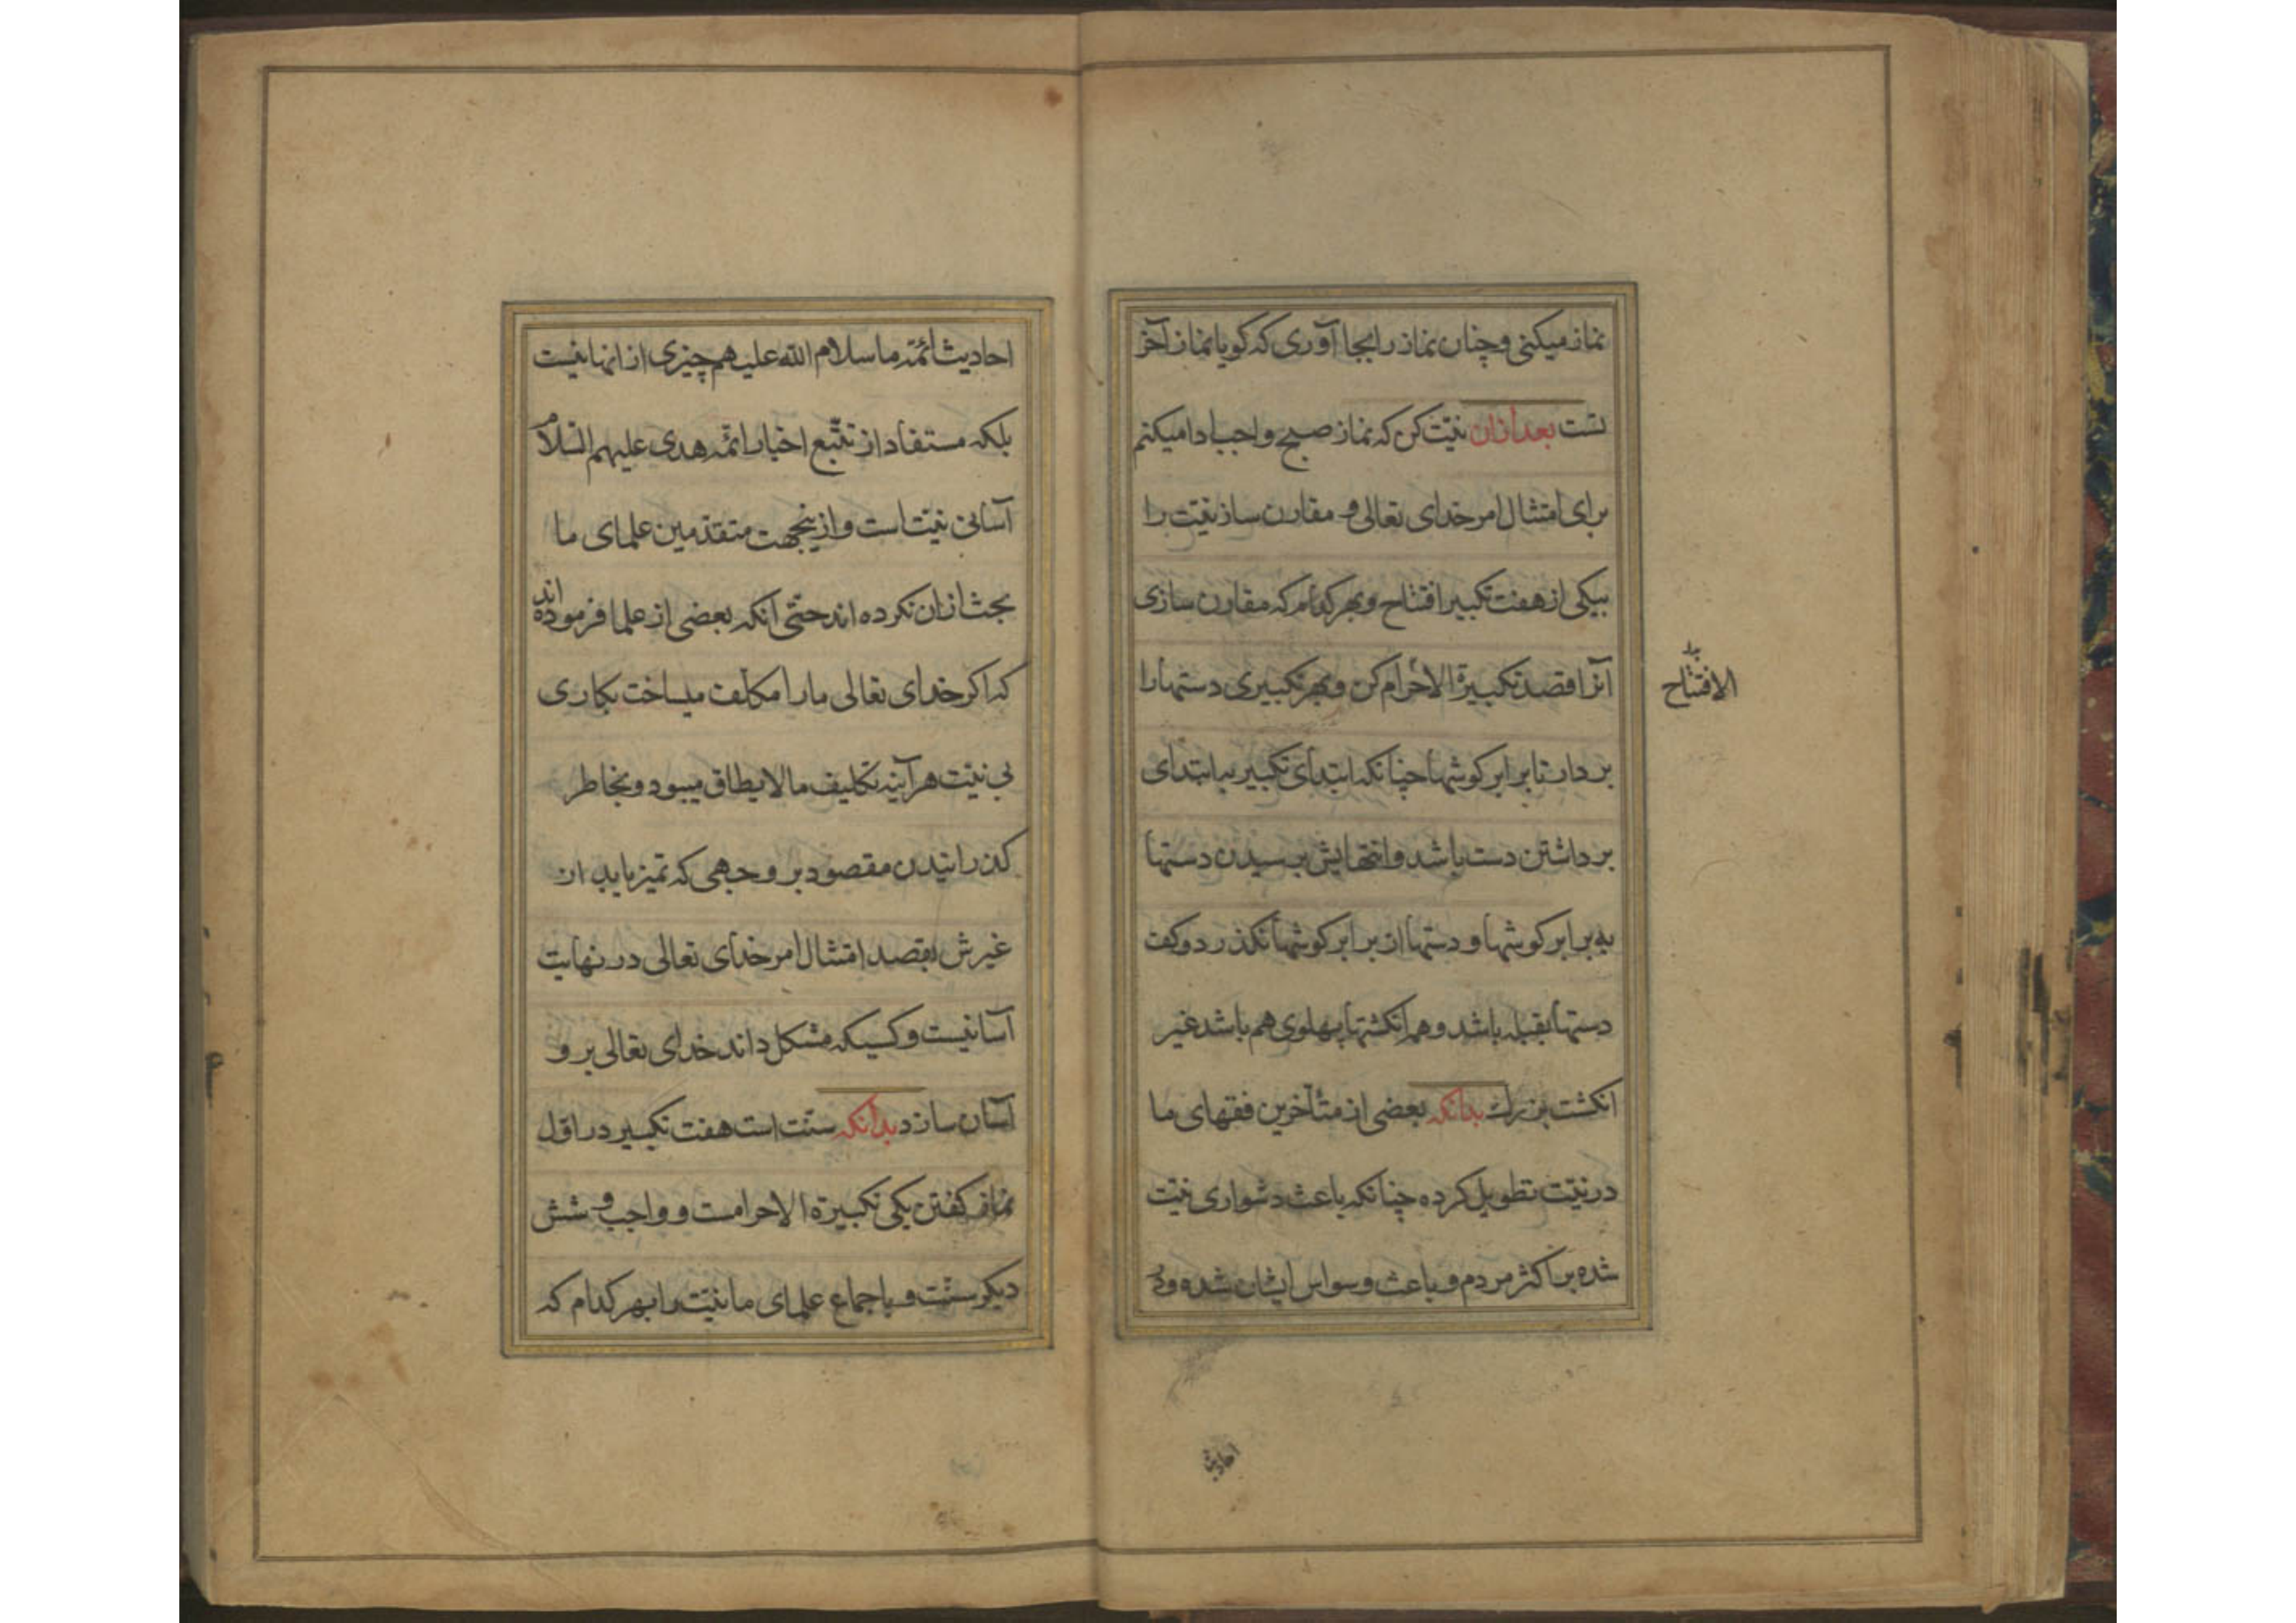 نماز میکنی و چنان نماز را بجا آوری که کویا نماز آخر
تست بعد ازان نیّت کن که نماز صبح واجب ادا میکنم
برای امتثال امر خدای تعالی و مقارن ساز نیّت را
بیکی از هفت تکبیر افتتاح و بهر کدام که مقارن سازی
آنرا قصد تکبیرة الاحرام کن و بهر تکبیری دستها را
الافتتاح
بردار تا برابر کوشها چنانکه ابتدای تکبیر به ابتدای
برداشتن دست باشد و انتهایش برسیدن دستها
به برابر کوشها و دستها از برابر کوشها نکذرد و کف
دستها بقبله باشد و همه انکشتها بپهلوی هم باشد غیر
انکشت بزرك بدانکه بعضی از متأخرین فقهای ما
در نیّت تطویل کرده چنانکه باعث دشواری نیّت
شده بر اکثر مردم و باعث وسواس ایشان شده و در
احادیث
احادیث ائمّه ما سلام الله علیهم چیزی از انها نیست
بلکه مستفاد از تتبّع اخبار ائمّه هدی علیهم السّلام
آسانی نیّت است و ازینجهت متقدّمین علمای ما
بحث ازان نکرده اند حتّی انکه بعضی از علما فرموده اند
که اکر خدای تعالی ما را مکلّف میساخت بکاری
بی نیّت هر آینه تکلیف ما لا یطاق میبود و بخاطر
کذرانیدن مقصود بر وجهی که تمیز یابد از
غیرش بقصد امتثال امر خدای تعالی در نهایت
آسانیست و کسیکه مشکل داند خدای تعالی برو
آسان سازد بدانکه سنّت است هفت تکبیر در اوّل
نماز کفتن یکی تکبیرة الاحرامست و واجب و شش
دیکر سنّت و باجماع علمای ما نیّت را بهر کدام که